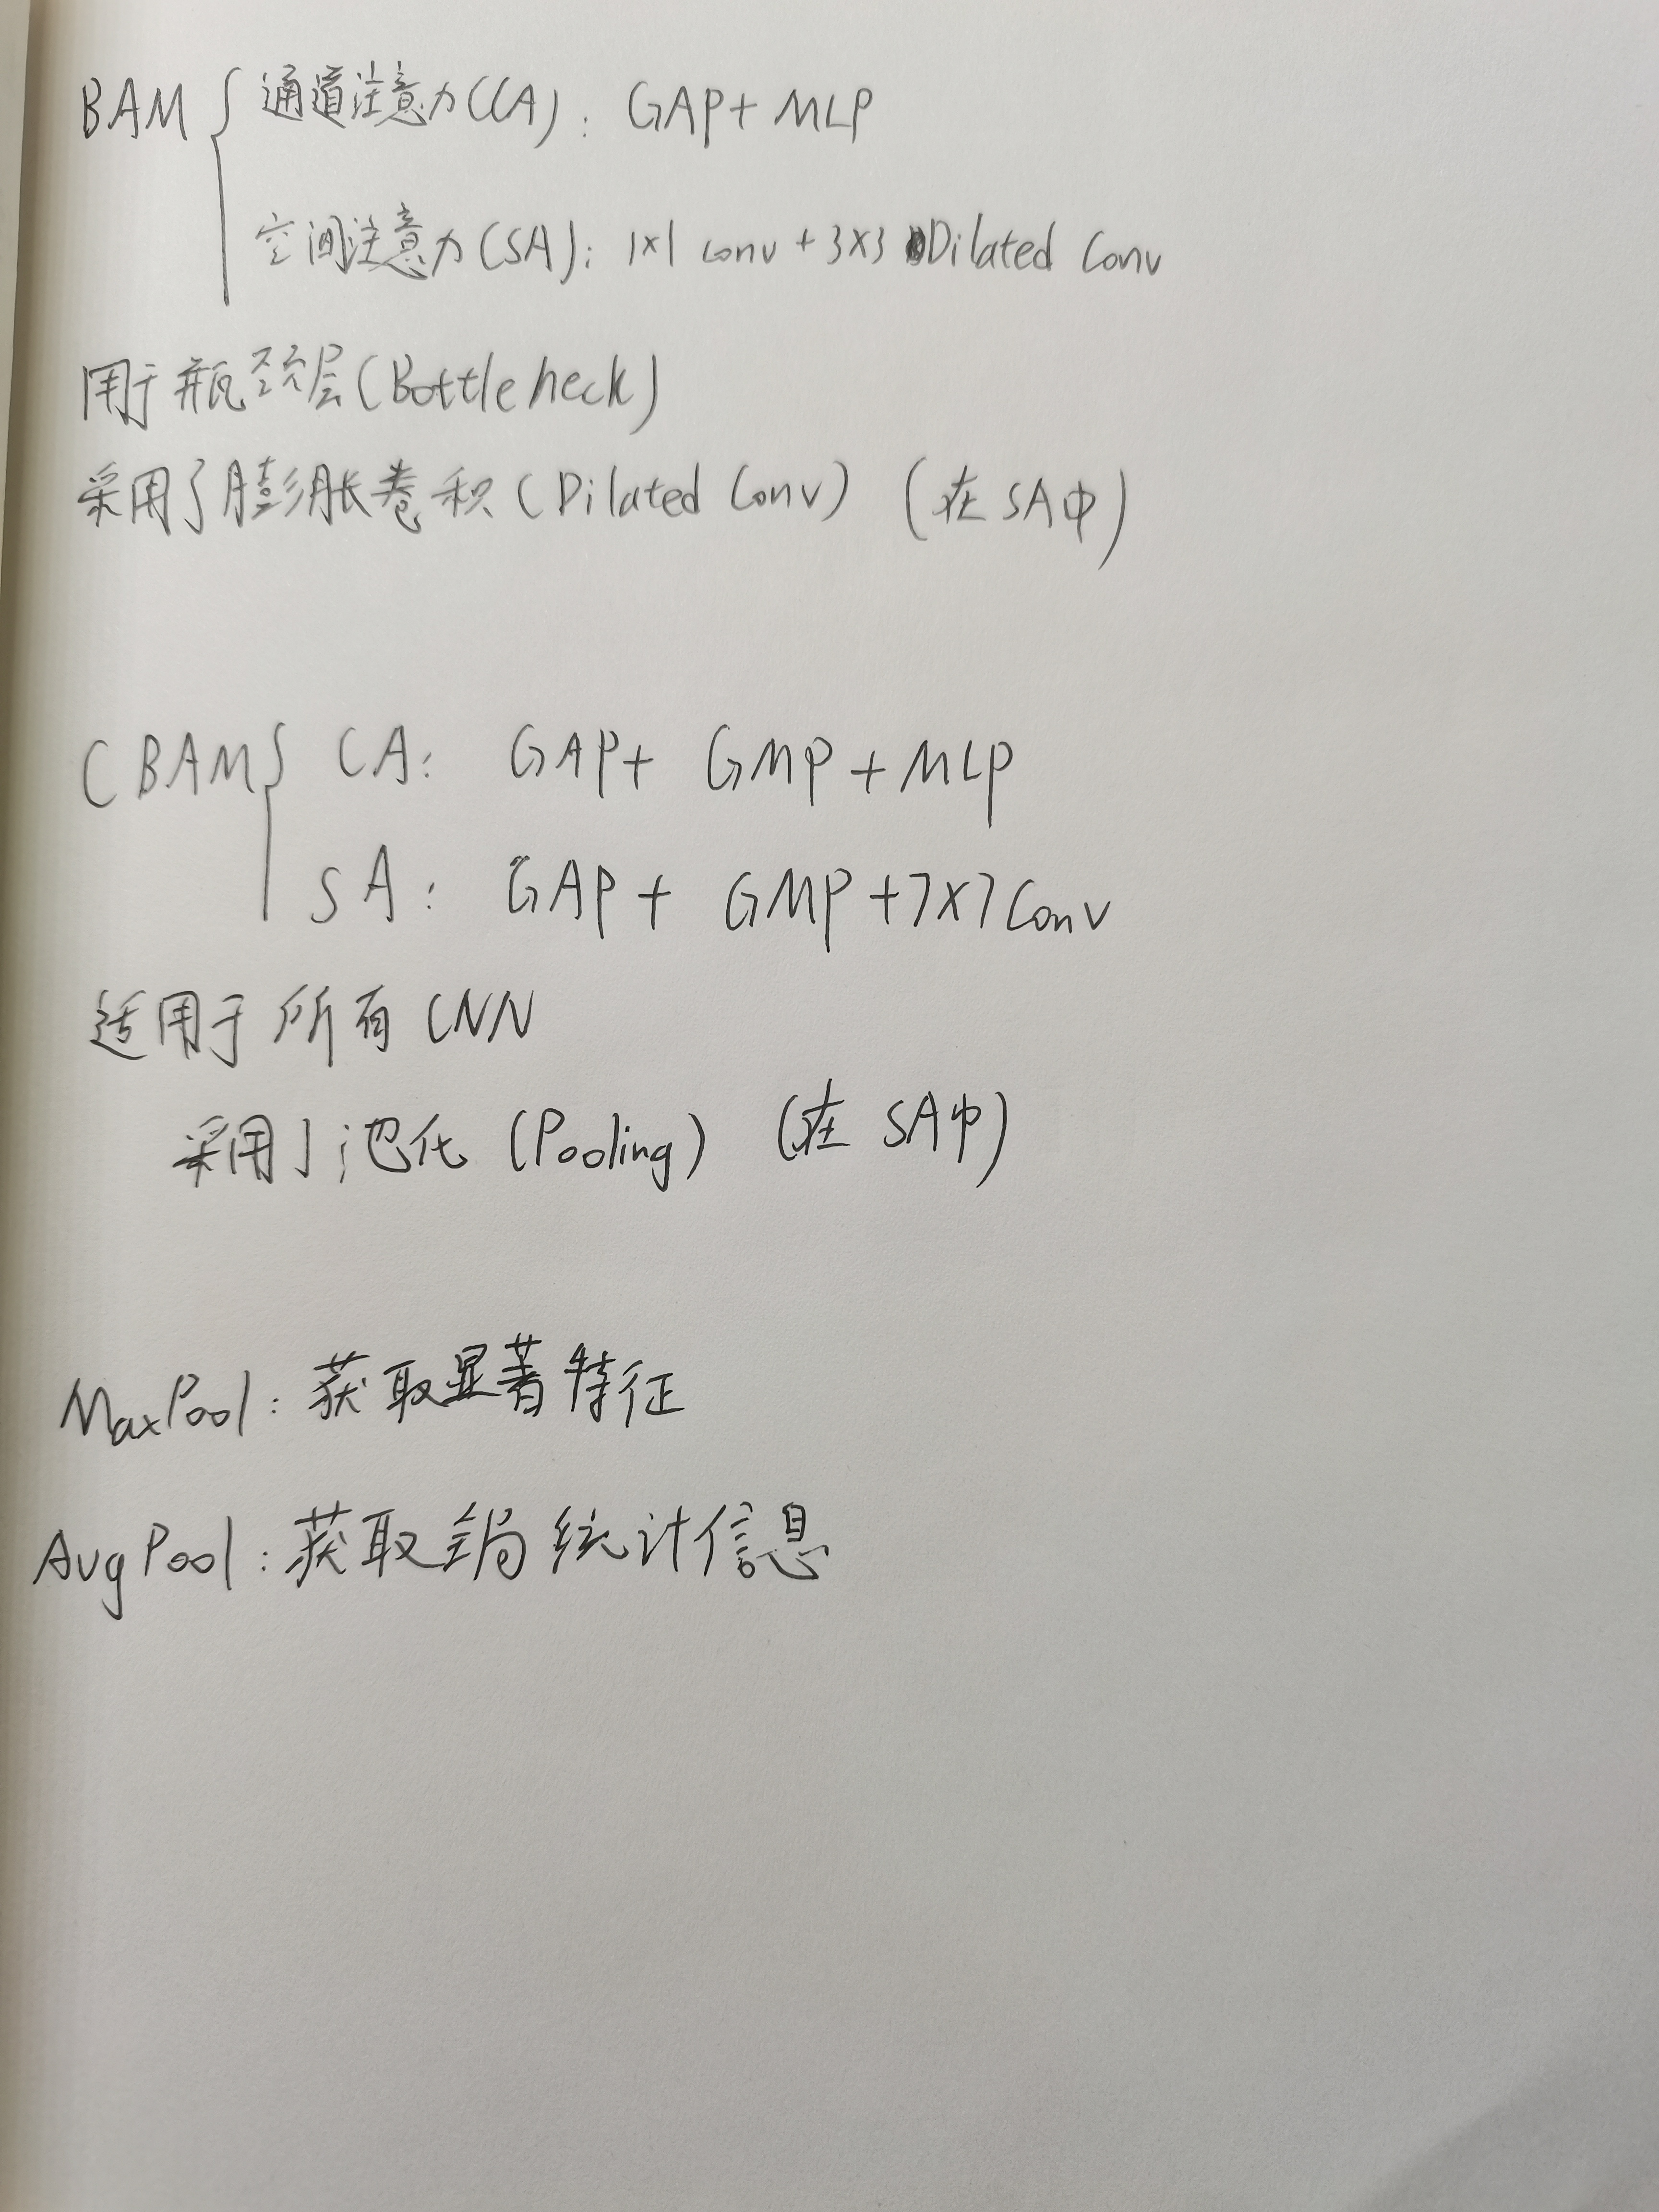 BAM { 通道注意力(CA): GAP+ MLP
空间注意力(SA): 1×1 conv + 3×3 Dilated Conv
用于瓶颈层(Bottleneck)
采用了膨胀卷积(Dilated Conv) (在SA中)
CBAM { CA: GAP+ GMP+MLP
SA: GAP+ GMP+7×7Conv
适用于所有CNN
采用了池化(Pooling) (在SA中)
MaxPool: 获取显著特征
AvgPool: 获取全局统计信息